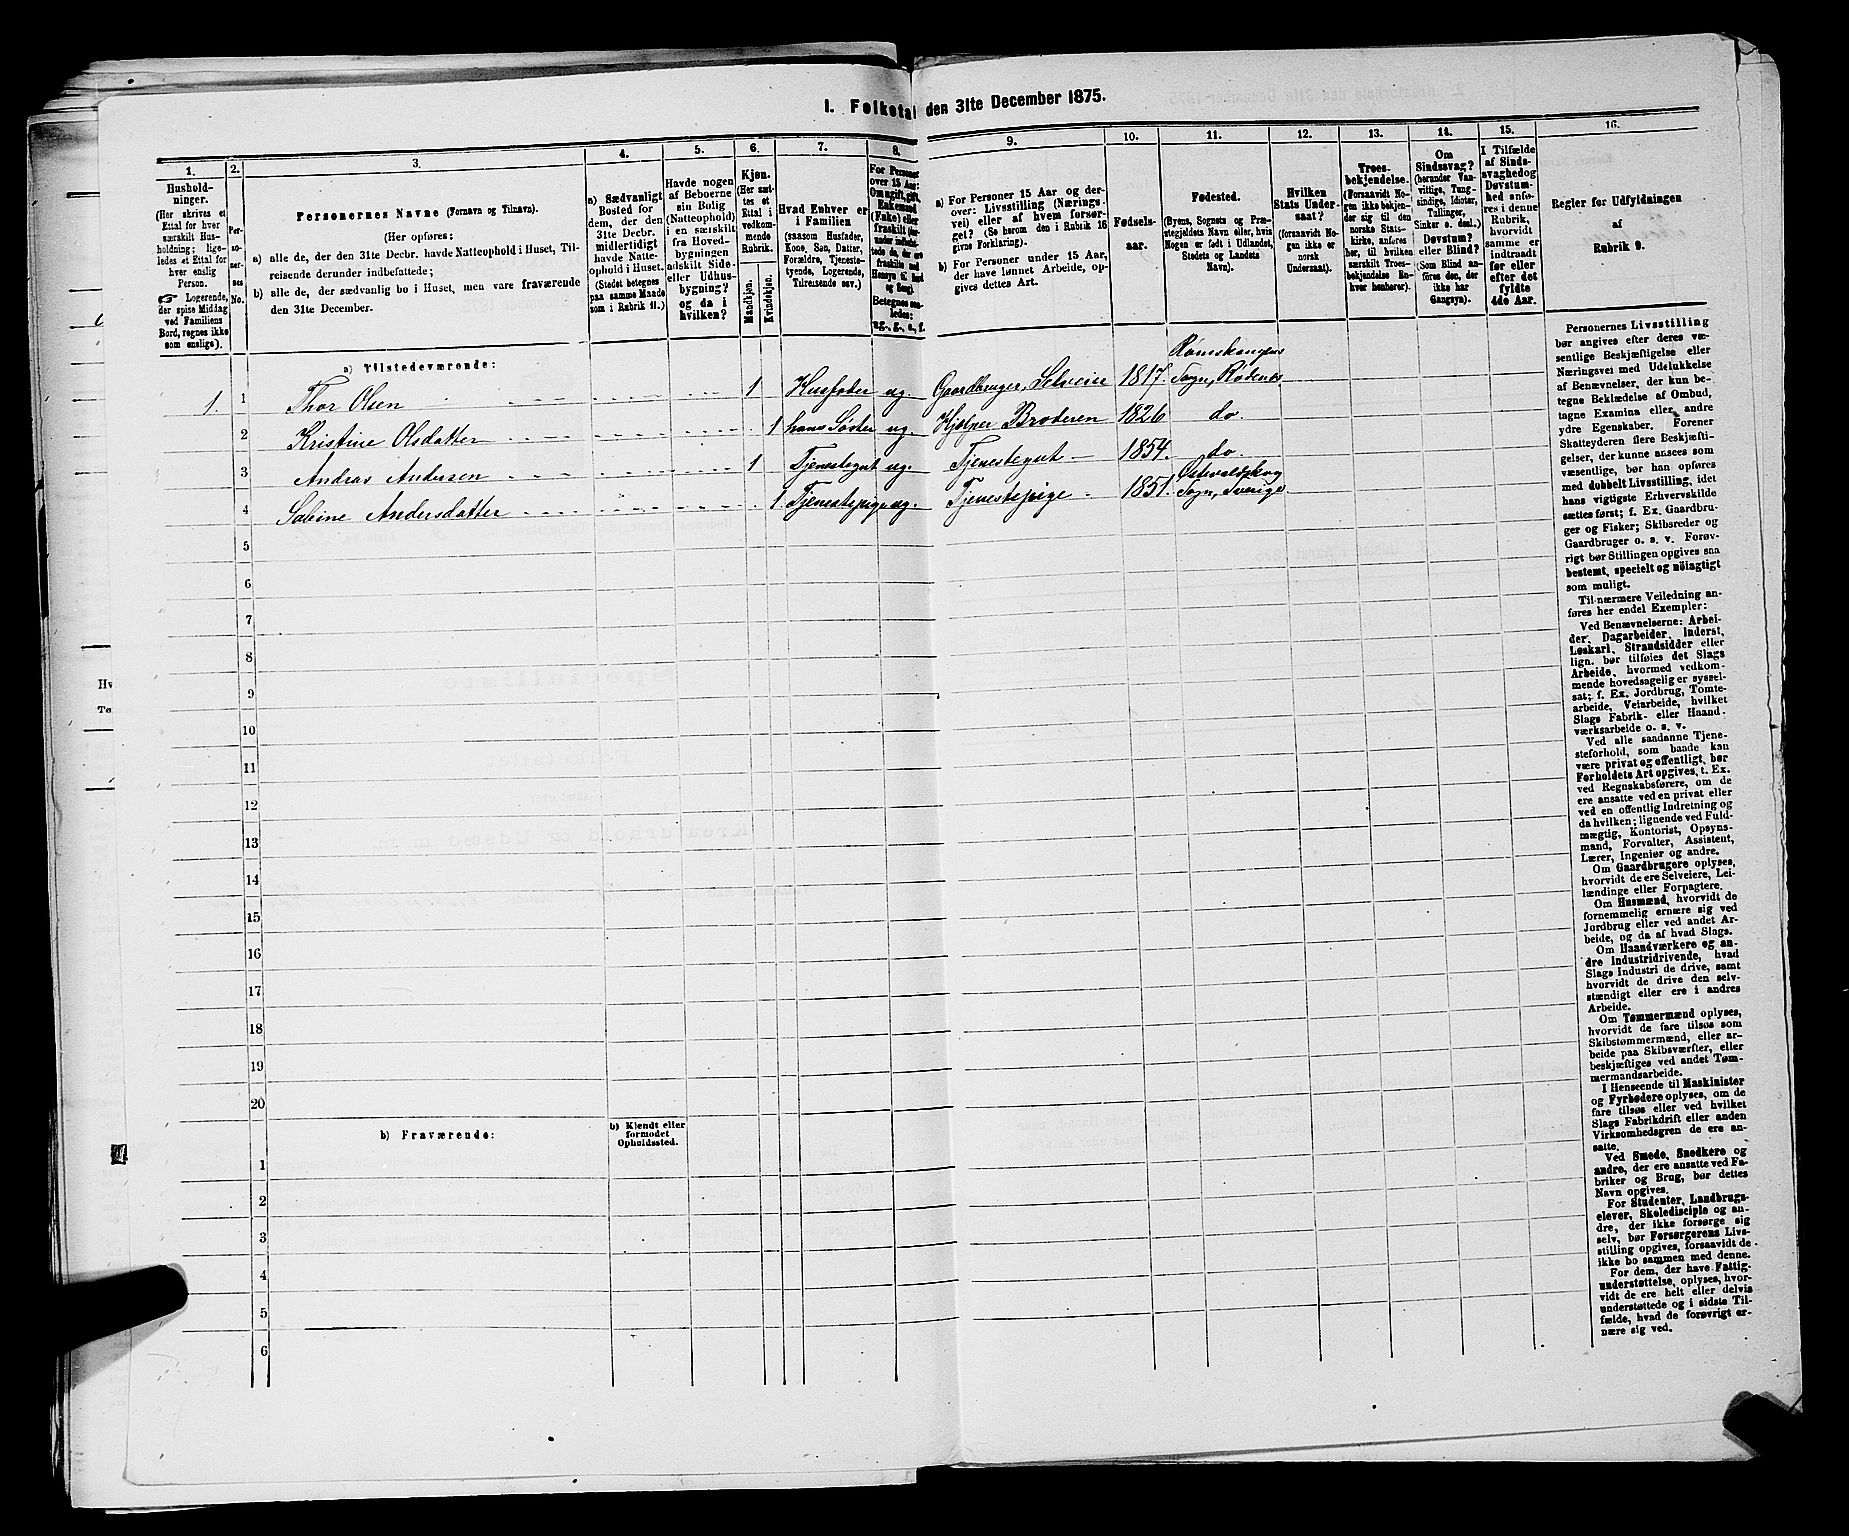 I. Folketal den 31te December 1875.
1.
2.
3.
4.
5.
6.
7.
8.
9.
10.
11.
12.
13.
14.
15.
16.
Hushold-
ninger.
(Her skrives et
Ettal for hver
særskilt Hus-
holdning; lige-
ledes et Ettal for
hver enslig
Person.
☞ Logerende,
der spise Middag
ved Familiens
Bord, regnes ikke
som enslige).
Per-
so-
ner-
nes
No.
Personernes Navne (Fornavn og Tilnavn).
(Her opføres:
a) alle de, der den 31te Decbr. havde Natteophold i Huset, Til-
reisende derunder indbefattede;
b) alle de, der sædvanlig bo i Huset, men vare fraværende
den 31te December.
a) Sædvanligt
Bosted for
dem, der den
31te Decbr.
midlertidigt
havde Natte-
ophold i Huset.
(Stedet betegnes
paa samme Maade
som i Rubrik 11.)
Havde nogen
af Beboerne
sin Bolig
(Natteophold)
i en særskilt
fra Hoved-
bygningen
adskilt Side-
eller Udhus-
bygning?
og da i
hvilken?
Kjøn.
(Her sæt-
tes et
Ettal i
vedkom-
mende
Rubrik.
Mandkjøn.
Kvindekjøn.
Hvad Enhver er
i Familien
(saasom Husfader,
Kone, Søn, Datter,
Forældre, Tjeneste-
tyende, Logerende,
Tilreisende osv.)
For Personer
over 15 Aar:
Om ugift, gift,
Enkemand
(Enke) eller
fraskilt
Betegnes saa-
ledes:
ug., g., e., f.
a) For Personer 15 Aar og der-
over: Livsstilling (Nærings-
vei) eller af hvem forsør-
get? (Se herom den i Rubrik 16
givne Forklaring).
b) For Personer under 15 Aar,
der have lønnet Arbeide, op-
gives dettes Art.
Fødsels-
aar.
Fødested.
(Byens, Sognets og Præ-
stegjeldets Navn eller, hvis
Nogen er født i Udlandet,
Stedets og Landets
Navn).
Hvilken
Stats Under-
saat?
(forsaavidt No-
gen ikke er
norsk
Undersaat).
Troes-
bekjendelse.
(Forsaavidt No-
gen ikke bekjen-
der sig til den
norske Stats-
kirke, anføres
her, til hvilken
særskilt Troes-
bekjendelse En-
hver henhører).
Om
Sindssvag?
(herunder Van-
vittige, Tung-
sindige, Idioter,
Tullinger,
Sinker o. desl.)
Døvstum?
eller Blind?
(Som Blind an-
føres den, der
ikke har
Gangsyn).
I Tilfælde
af Sinds-
svaghed og
Døvstum-
hed anfø-
res i denne
Rubrik,
hvorvidt
samme er
indtraadt
før eller
efter det
fyldte
4de Aar.
Regler for Udfyldningen
af
Rubrik 9.
a) Tilstedeværende:
1. 1 Thor Olsen 1 Husfader ug Gaardbruger, Selveier 1817. Romskongens Sogn, Rødenes
2 Kristine Olsdatter 1 hans Søster ug. Hjælper Broderen 1826 do.
3 Andras Andersen 1 Tjenestegut ug. Tjenestegut 1854. do.
4 Sabine Andersdatter 1 Tjenestepige ug. Tjenestepige 1851. Østvaldskog Sogn, Sverige.
5
6
7
8
9
10
11
12
13
14
15
16
17
18
19
20
b) Fraværende:
b) Kjendt eller
formodet
Opholdssted.
1
2
3
4
5
6
Personernes Livsstilling
bør angives efter deres væ-
sentlige Beskjæftigelse eller
Næringsvei med Udelukkelse
af Benævnelser, der kun be-
tegne Beklædelse af Ombud,
tagne Examina eller andre
ydre Egenskaber. Forener
Skatteyderen flere Beskjæfti-
gelser, der kunne ansees som
væsentlige, bør han opføres
med dobbelt Livsstilling, idet
hans vigtigste Erhvervskilde
sættes først; f. Ex. Gaardbru-
ger og Fisker; Skibsreder og
Gaardbruger o. s. v. Forøv-
rigt bør Stillingen opgives saa
bestemt, specielt og nöiagtigt
som muligt.
Til nærmere Veiledning an-
føres her endel Exempler:
Ved Benævnelserne: Arbei-
der, Dagarbeider, Inderst,
Løskarl, Strandsidder eller
lign. bør tilføies det Slags
Arbeide, hvormed vedkom-
mende hovedsagelig er syssel-
sat; f. Ex. Jordbrug, Tomte-
arbeide, Veiarbeide, hvilket
Slags Fabrik- eller Haand-
værksarbeide o. s. v.
Ved alle saadanne Tjene-
steforhold, som baade kan
være privat og offentligt, bør
Forholdets Art opgives, t. Ex.
ved Regnskabsførere, om de
ere ansatte ved en privat eller
ved en offentlig Indretning og
da hvilken; lignende ved Fuld-
mægtig, Kontorist, Opsyns-
mand, Forvalter, Assistent,
Lærer, Ingeniør og andre.
Om Gaardbrugere oplyses,
hvorvidt de ere Selveiere, Lei-
lændinge eller Forpagtere.
Om Husmænd, hvorvidt de
fornemmelig ernære sig ved
Jordbrug eller ved andet Ar-
beide, og da af hvad Slags.
Om Haandværkere og an-
dre Industridrivende, hvad
Slags Industri de drive, samt
hvorvidt de drive den selv-
stændigt eller ere i andres
Arbeide.
Om Tømmermænd oplyses,
hvorvidt de fare tilsøs som
Skibstømmermænd, eller ar-
beide paa Skibsværfter, eller
beskjæftiges ved andet Tøm-
mermandsarbeide.
I Henseende til Maskinister
og Fyrbødere oplyses, om de
fare tilsøs eller ved hvilket
Slags Fabrikdrift eller anden
Virksomhedsgren de ere an-
satte.
Ved Smede, Snedkere og
andre, der ere ansatte ved Fa-
briker og Brug, bør dettes
Navn opgives.
For Studenter, Landbrugs-
elever, Skoledisciple og an-
dre, der ikke forsørge sig
selv, bør Forsørgerens Livs-
stilling opgives, forsaavidt de
ikke bo sammen med denne.
For dem, der have Fattig-
understøttelse, oplyses, hvor-
vidt de ere helt eller delvis
understøttede og i sidste Til-
fælde, hvad de forøvrigt er-
nære sig ved.